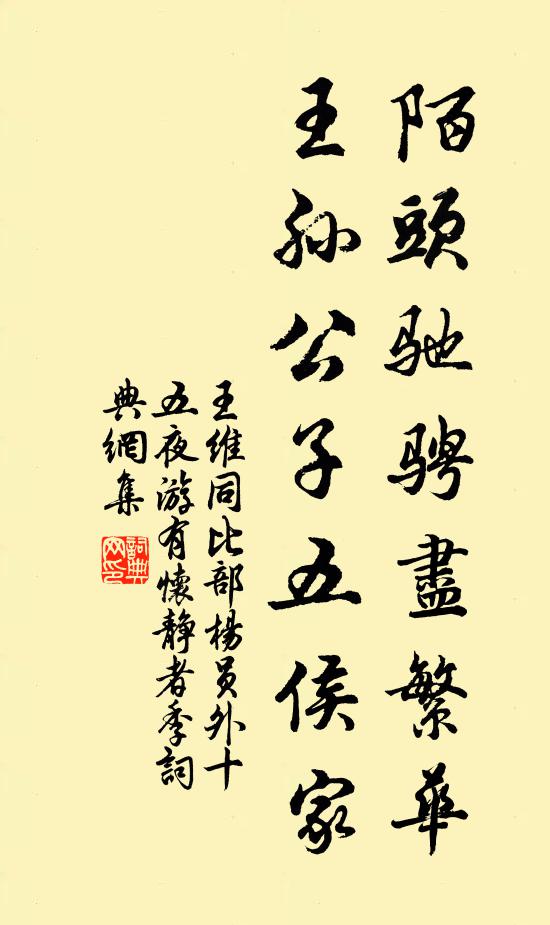 陌頭馳騁盡繁華
王孫公子五侯家
王維同比部楊員外十
五夜游有懷靜者季詞
典網集
詞典
网印